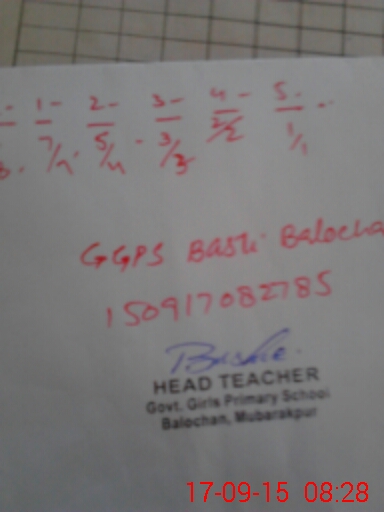 1- 2- 3- 4- 5-
7/7 5/4 3/3 2/2 1/1
GGPS Basti Balocha
150917082785
HEAD TEACHER
Govt. Girls Primary School
Balochan, Mubarakpur
17-09-15 08:28